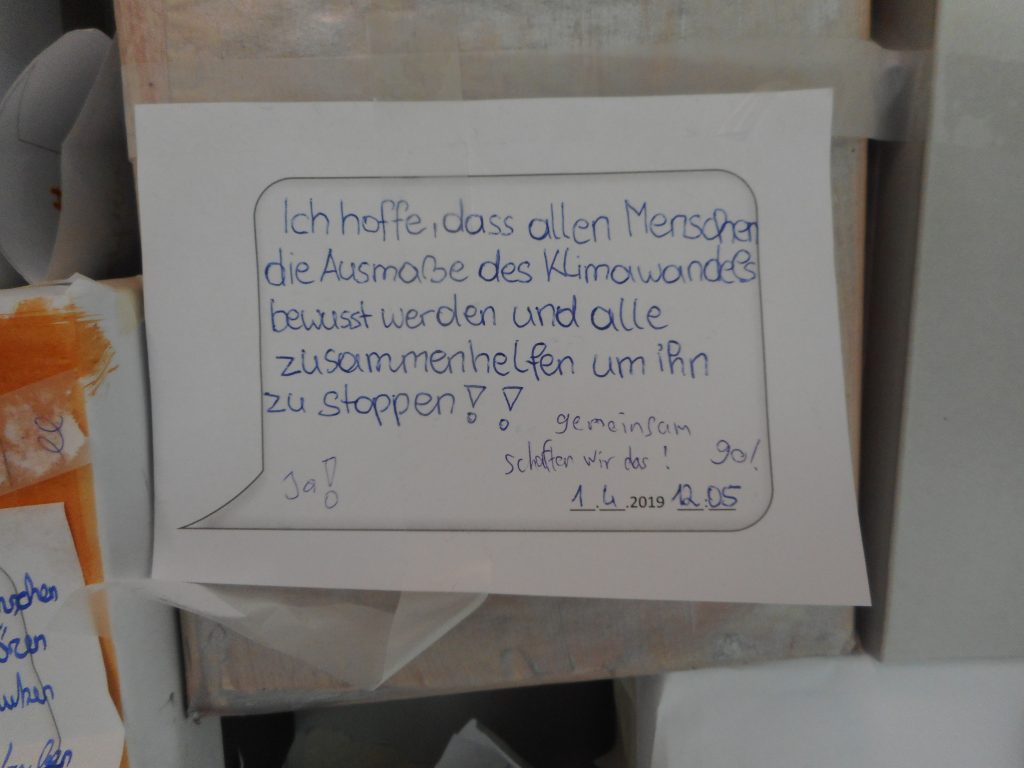 Ich hoffe, dass allen Menschen
die Ausmaße des Klimawandels
bewusst werden und alle
zusammenhelfen um ihn
zu stoppen!!
gemeinsam
schaffen wir das! go!
Ja!
1.4.2019 12:05